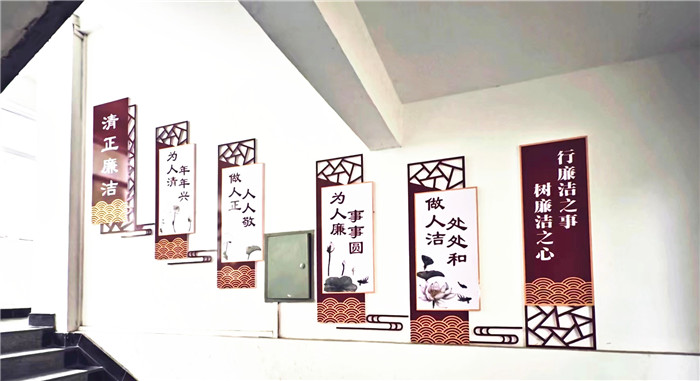 清正廉洁
为人清
年年兴
做人正
人人敬
为人廉
事事圆
做人洁
处处和
行廉洁之事
树廉洁之心